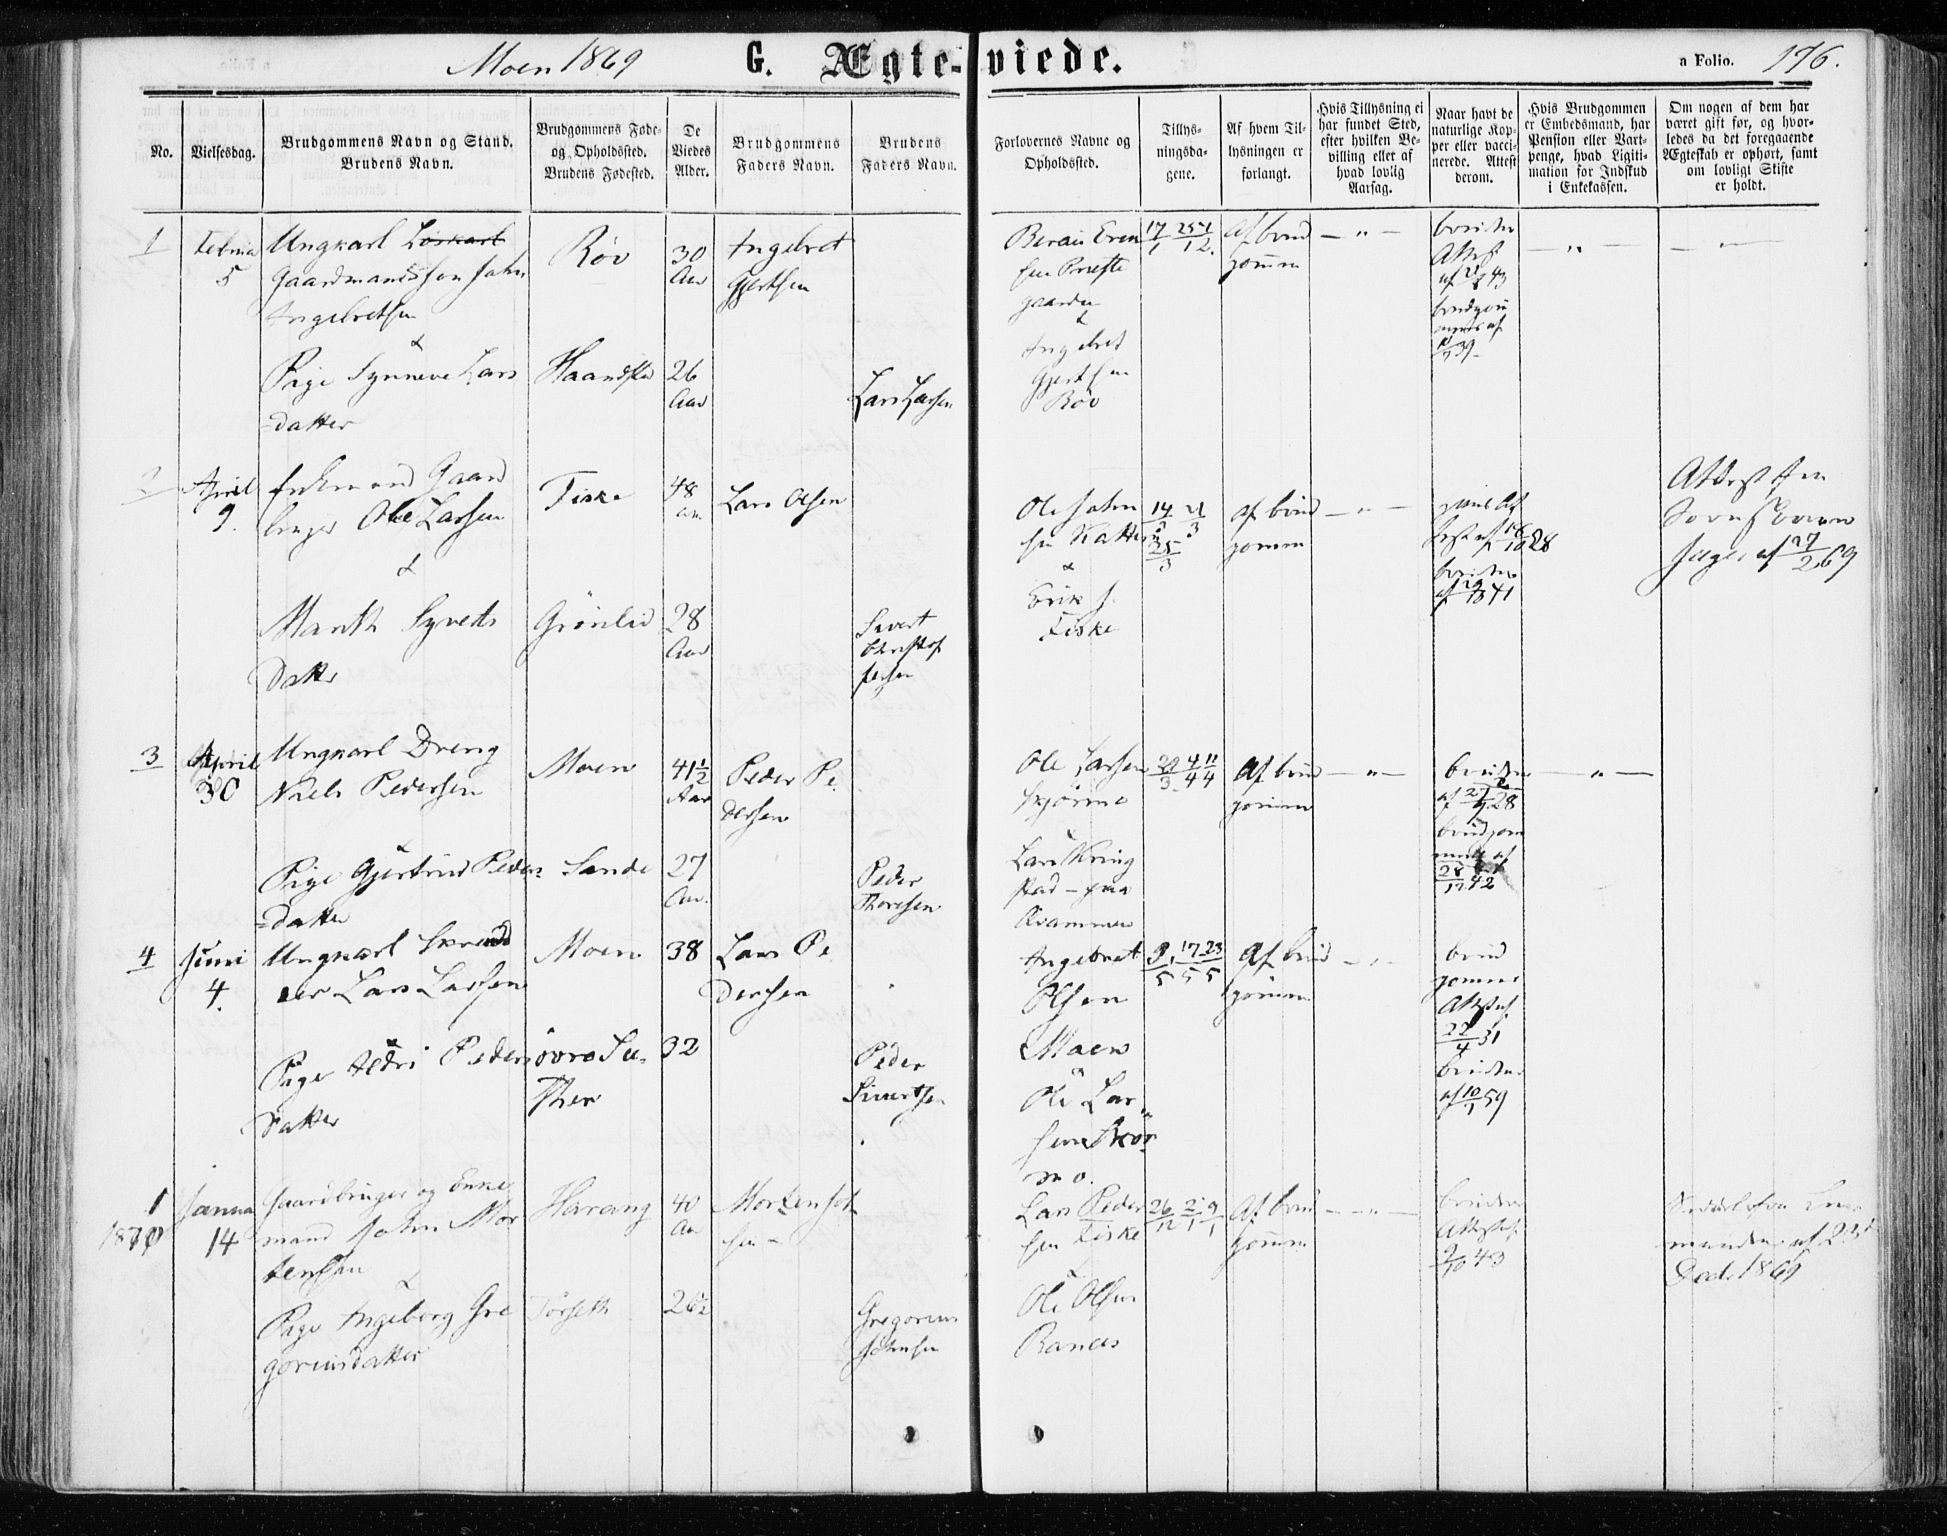 Moen 1869 G. Ægteviede. a Folio. 196.
No.
Vielsesdag.
Brudgommens Navn og Stand.
Brudens Navn.
Brudgommens Føde-
og Opholdssted.
Brudens Fødested.
De
Viedes
Alder.
Brudgommens
Faders Navn.
Brudens
Faders Navn.
Forlovernes Navne og
Opholdssted.
Tillys-
ningsda-
gene.
Af hvem Til-
lysningen er
forlangt.
Hvis Tillysning ei
har fundet Sted,
efter hvilken Be-
villing eller af
hvad lovlig
Aarsag.
Naar havt de
naturlige Kop-
per eller vacci-
nerede. Attest
derom.
Hvis Brudgommen
er Embedsmand, har
Pension eller Vart-
penge, hvad Ligiti-
mation for Indskud
i Enkekassen.
Om nogen af dem har
været gift før, og hvor-
ledes da det foregaaende
Ægteskab er ophørt, samt
om lovligt Skifte
er holdt.
1
Februa
5
Ungkarl
Gaardmandssøn John
Ingebretsen
&
Pige Synneve Lars
=datter
Røv
Haandstad
30
Aar
26
Aar
Ingebret
Gjertsen
Lars Larsen
Præste
gaarden
&
Ingebret
Gjertsen
Røv
17/1
af brud
gomm
— „ —
Attest
— „ —
— „ —
2
April
9.
Enkemand Gaard
bruger Ole Larsen
&
Marith Syverts
Datter
Fiske
Grønlid
48
28
Aar
Lars Olsen
Sivert
Christof
fersen
Ole John
sen
&
Erik J.
Fiske
14/3 21/3
25/3
af brud
gomm
— „ —
af 18/10 28
brudens
af 10 41
Attest fra
af 27/2 69
3
April
30
Ungkarl Dreng
Niels Pedersen
&
Pige Gjertrud Peders
=datter
Moen
Sande
41½
Aar
27
Aar.
Peder Pe
dersen
Peder
Thoresen
Ole Larsen
Skjørmo
&
Lars Kring
stad - paa
Kvammen
4/4 11/4
Af brud
gommen
— „ —
brudens
af 28
brudgom
mens af
28/12 42
— „ —
4
Juni
4.
Ungkarl Skræd
der Lars Larsen
&
Pige Peders
Datter
Moen
øvre Su
38
32
Lars Pe
dersen
Peder
Sivertsen
Ingebret
Olsen
Moen
&
Ole Lar
sen Skør
mo.
9/5 17/5 23/5
Af brud
gomm
— „ —
brud
gommens
Attest af
22/4 31
brudens
af 10/1 59
1
1870
Janua
14
Gaardbruger og Enke
mand John Mor
tensen
&
Pige Ingeborg Gre
goriusdatter
Harang
Torseth
40
Aar
26½
Morten Joh
sen
Gregorius
Johnsen
Lars Peder
sen Fiske
&
Ole Olsen
Ranes
26/12 2/1 9/1
Af brud
gomm
— „ —
brudens
Attest af
9/10 43
af 23d
Decb 1869